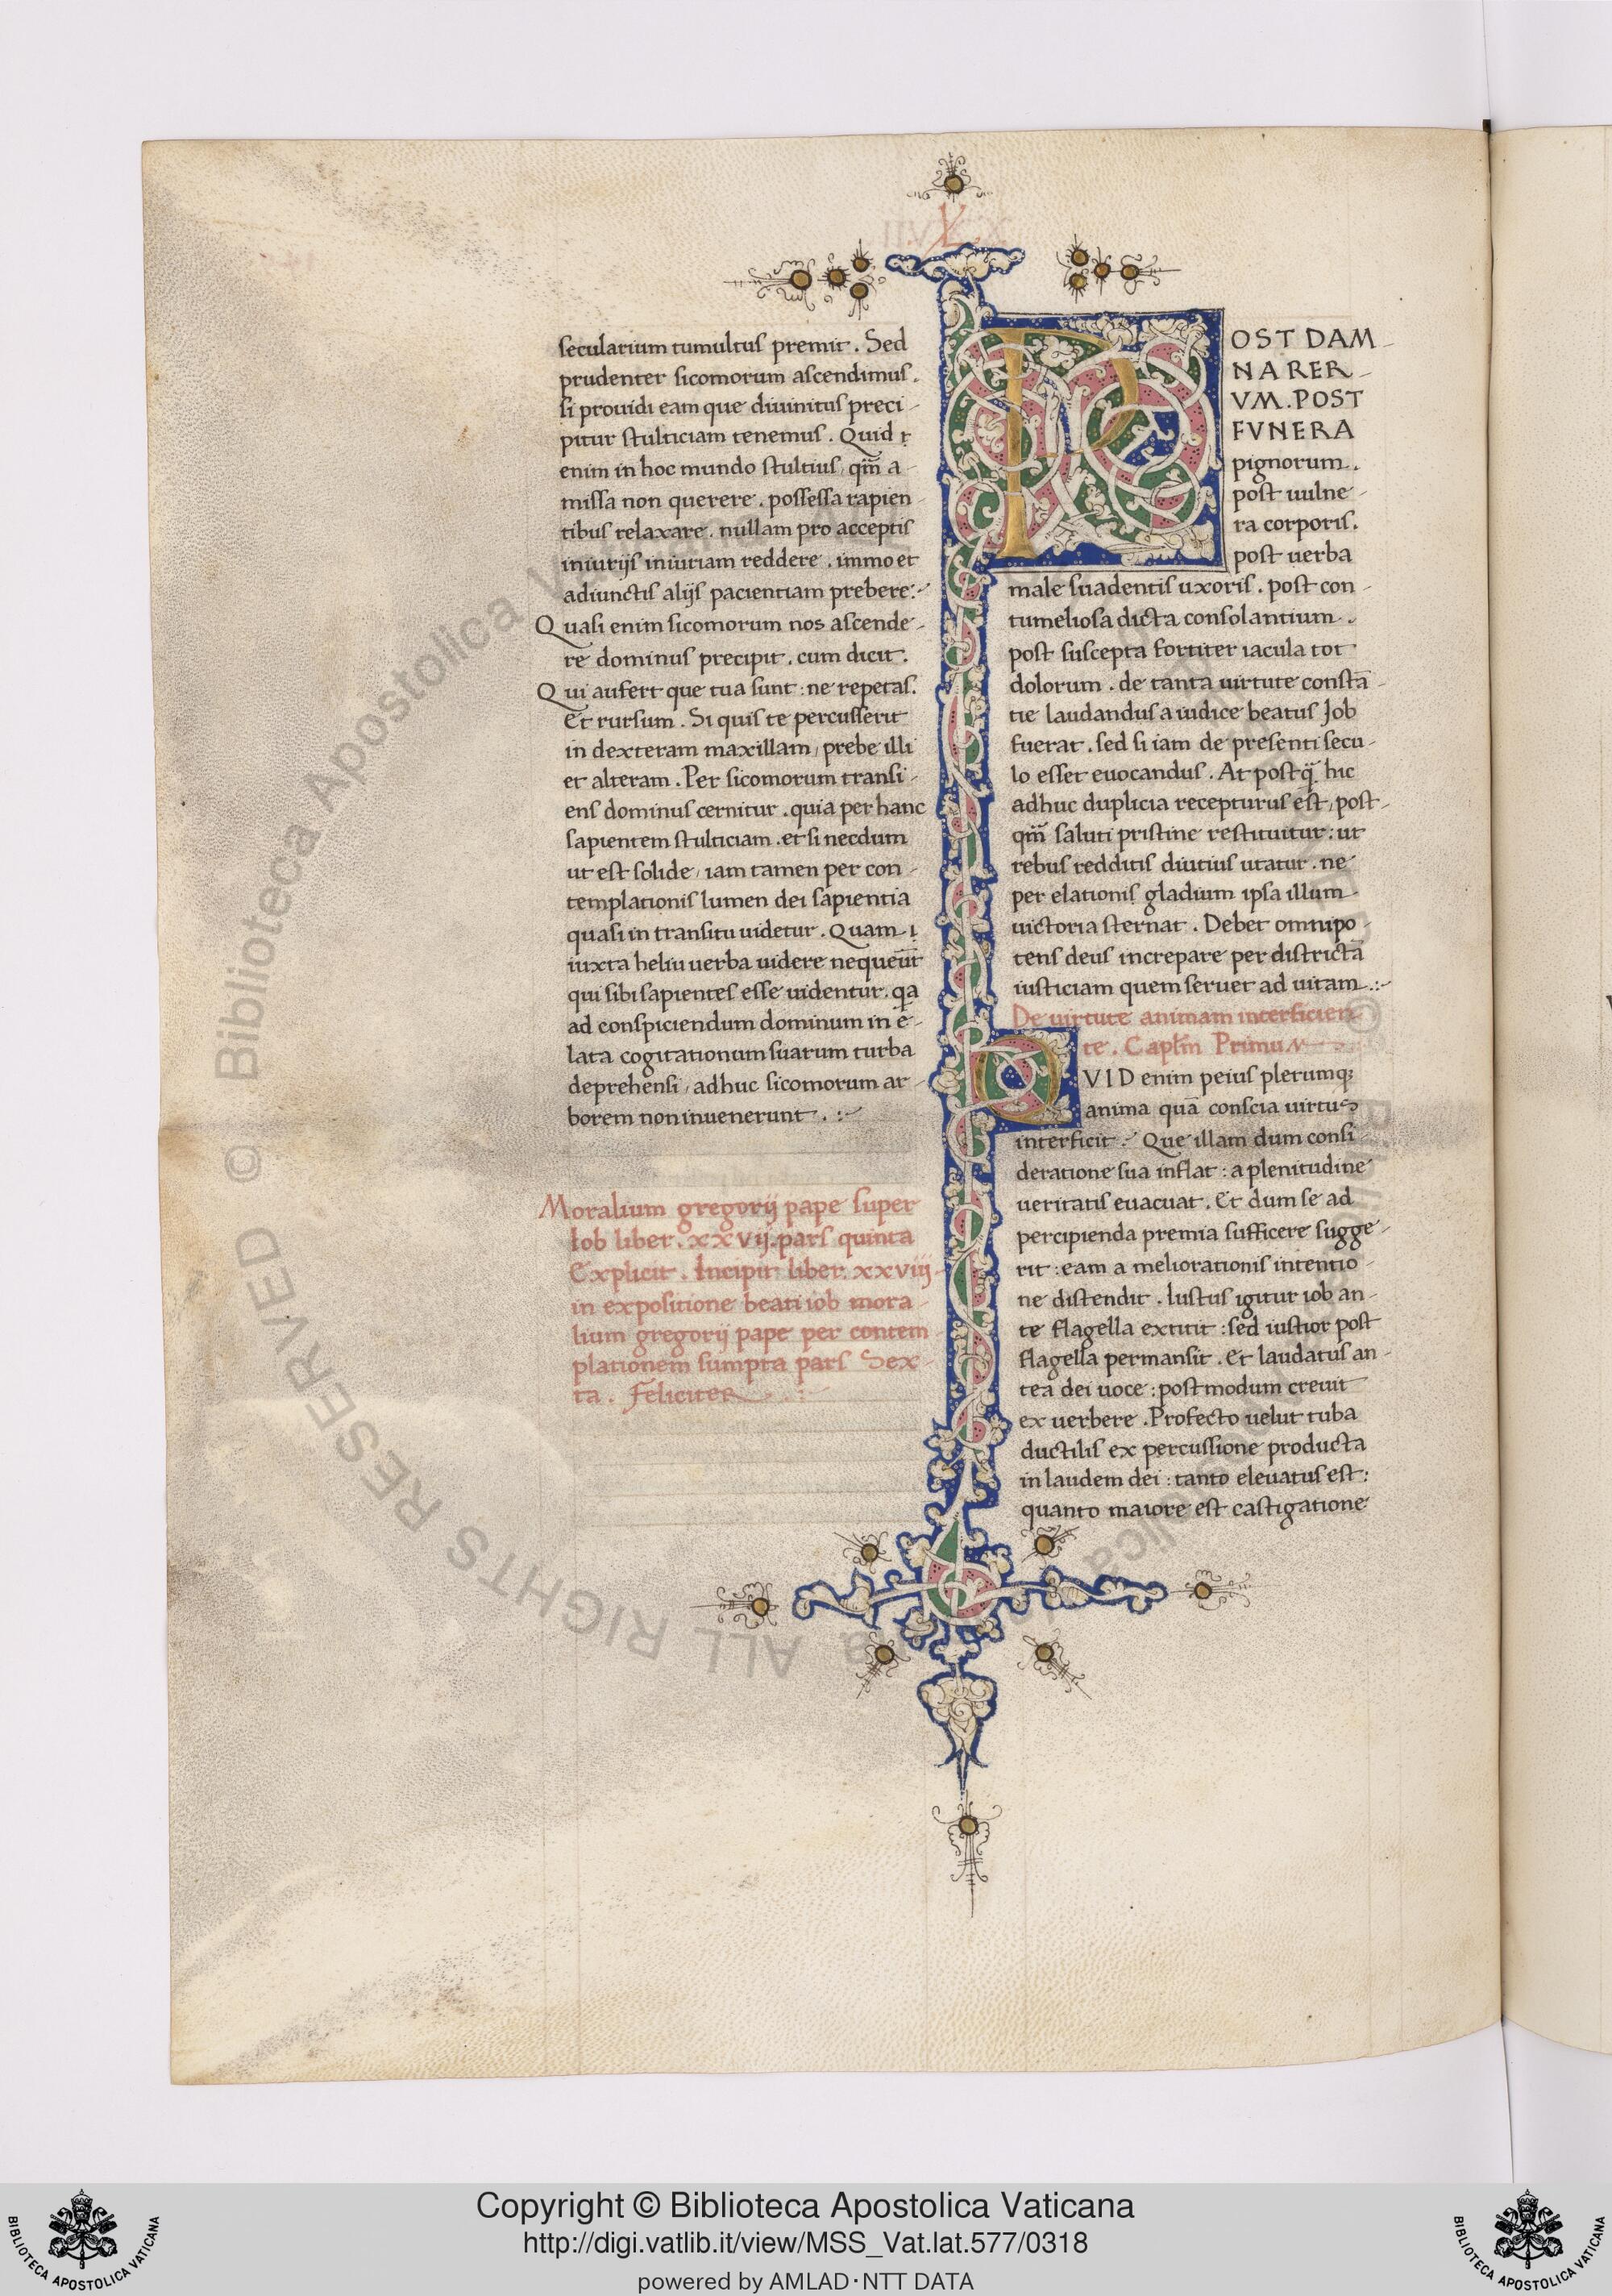 L
secularium tumultus premit. Sed
prudenter sicomorum ascendimus.
si prouidi eam que diuinitus preci-
pitur stulticiam tenemus. Quid
enim in hoc mundo stultius, qm̄ a-
missa non querere. possessa rapien-
tibus relaxare. nullam pro acceptis
iniurijs iniuriam reddere. immo et
adiunctis alijs pacientiam prebere:-
Quasi enim sicomorum nos ascende-
re dominus precipit. cum dicit.
Qui aufert que tua sunt: ne repetas.
Et rursum. Si quis te percusserit
in dexteram maxillam, prebe illi
et alteram. Per sicomorum transi-
ens dominus cernitur. quia per hanc
sapientem stulticiam. et si necdum
ut est solide, iam tamen per con-
templationis lumen dei sapientia
quasi in transitu uidetur. Quam
iuxta heliu uerba uidere nequeūt
qui sibi sapientes esse uidentur. qa
ad conspiciendum dominum in e-
lata cogitationum suarum turba
deprehensi, adhuc sicomorum ar-
borem non inuenerunt.:-
Moralium gregorij pape super
Iob liber. xxvij. pars quinta
Explicit. Incipit liber. xxviij
in expositione beati iob mora-
lium gregorij pape per contem
plationem sumpta pars Sex-
ta. Feliciter.:-
POST DAM-
NA RER-
VM. POST
FVNERA
pignorum.
post uulne-
ra corporis.
post uerba
male suadentis uxoris. post con-
tumeliosa dicta consolantium.
post suscepta fortiter iacula tot
dolorum. de tanta uirtute constā-
tie laudandus a iudice beatus Job
fuerat. sed si iam de presenti secu-
lo esset euocandus. At postq̄ hic
adhuc duplicia recepturus est, post-
qm̄ saluti pristine restituitur: ut
rebus redditis diutius utatur. ne
per elationis gladium ipsa illum
uictoria sternat. Debet omnipo-
tens deus increpare per districtā
iusticiam quem seruet ad uitam.:-
De uirtute animam interficien-
te. Capłm Primum
QVID enim peius plerumq;
anima quā conscia uirtus
interficit. Que illam dum consi-
deratione sua inflat: a plenitudine
ueritatis euacuat. Et dum se ad
percipienda premia sufficere sugge-
rit: eam a meliorationis intentio-
ne distendit. Iustus igitur iob an-
te flagella extitit: sed iustior post
flagella permansit. Et laudatus an-
tea dei uoce: postmodum creuit
ex uerbere. Profecto uelut tuba
ductilis ex percussione producta
in laudem dei: tanto eleuatus est:
quanto maiore est castigatione
© Biblioteca Apostolica Vaticana ALL RIGHTS RESERVED
Copyright © Biblioteca Apostolica Vaticana
http://digi.vatlib.it/view/MSS_Vat.lat.577/0318
powered by AMLAD·NTT DATA
BIBLIOTECA APOSTOLICA VATICANA
BIBLIOTECA APOSTOLICA VATICANA